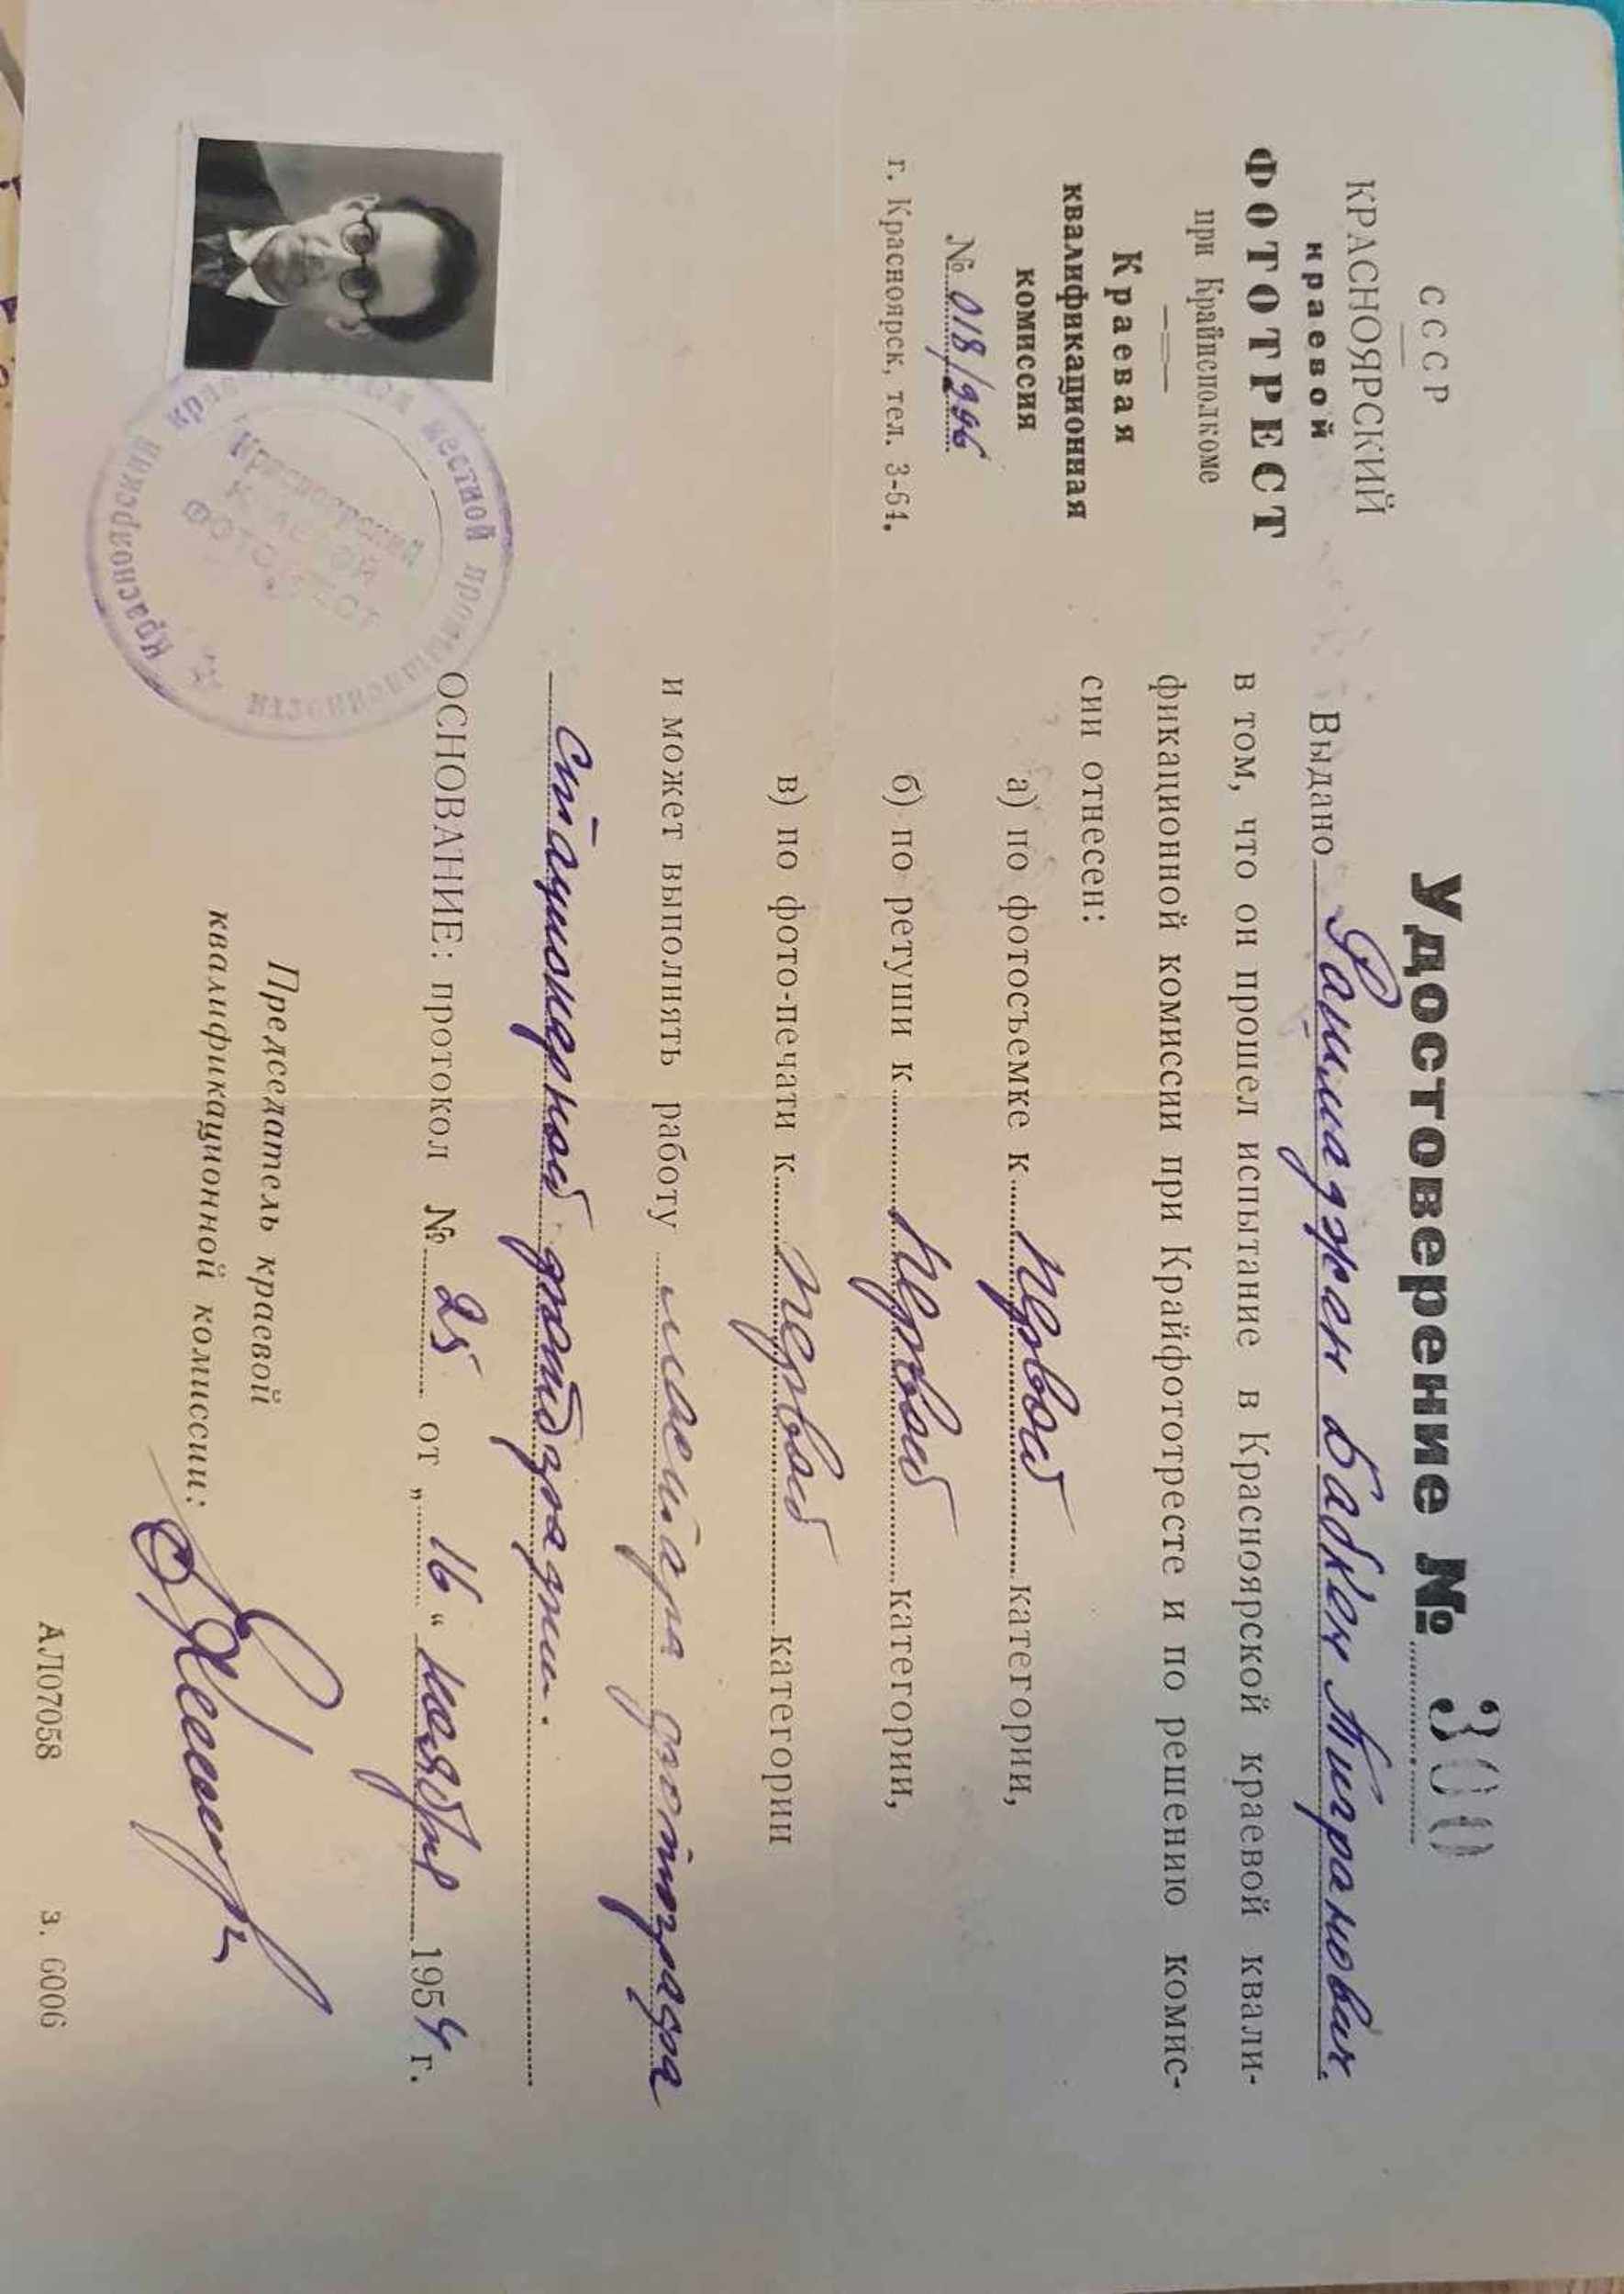 СССР
КРАСНОЯРСКИЙ
краевой
ФОТОТРЕСТ
при Крайисполкоме
Краевая
квалификационная
комиссия
№ 018/996
г. Красноярск, тел. 3-64.
Удостоверение № 300
Выдано Фашмаджен Бабкен Тигранович
в том, что он прошел испытание в Красноярской краевой квали-
фикационной комиссии при Крайфототресте и по решению комис-
сии отнесен:
а) по фотосъемке к первой категории,
б) по ретуши к первой категории,
в) по фото-печати к первой категории
и может выполнять работу мастера фотографа
стационерной фотографии.
ОСНОВАНИЕ: протокол № 25 от „16“ ноября 1954 г.
Председатель краевой
квалификационной комиссии:
АЛ07058 З. 6006
Красноярский
краевой
ФОТОТРЕСТ
местной промышленности
Красноярский